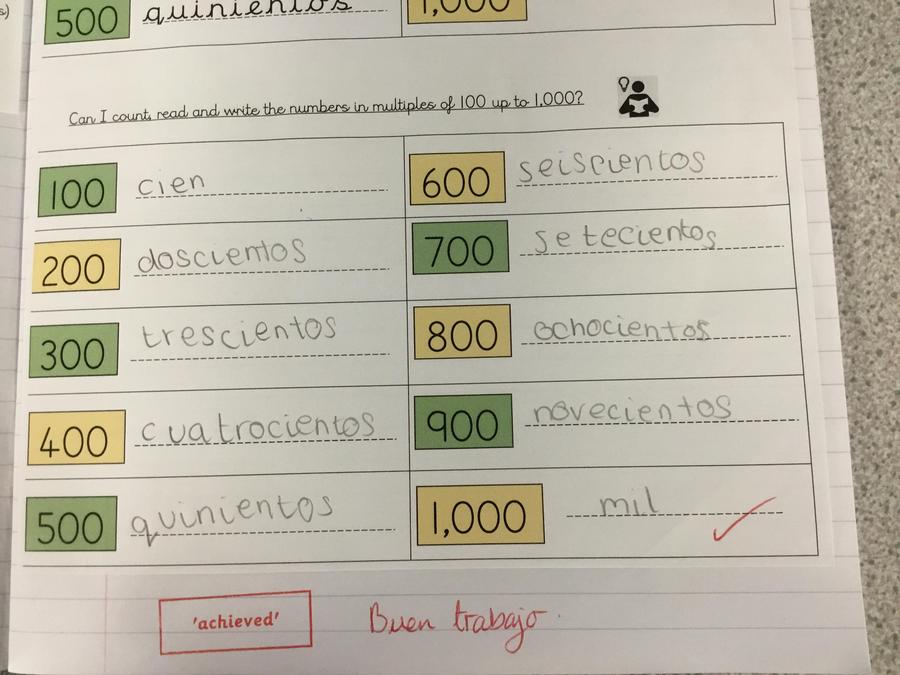 s)
500 quinientos 1,000
Can I count, read and write the numbers in multiples of 100 up to 1,000?
100 cien 600 seiscientos
200 doscientos 700 setecientos
300 trescientos 800 ochocientos
400 cuatrocientos 900 novecientos
500 quinientos 1,000 mil
'achieved' Buen trabajo.